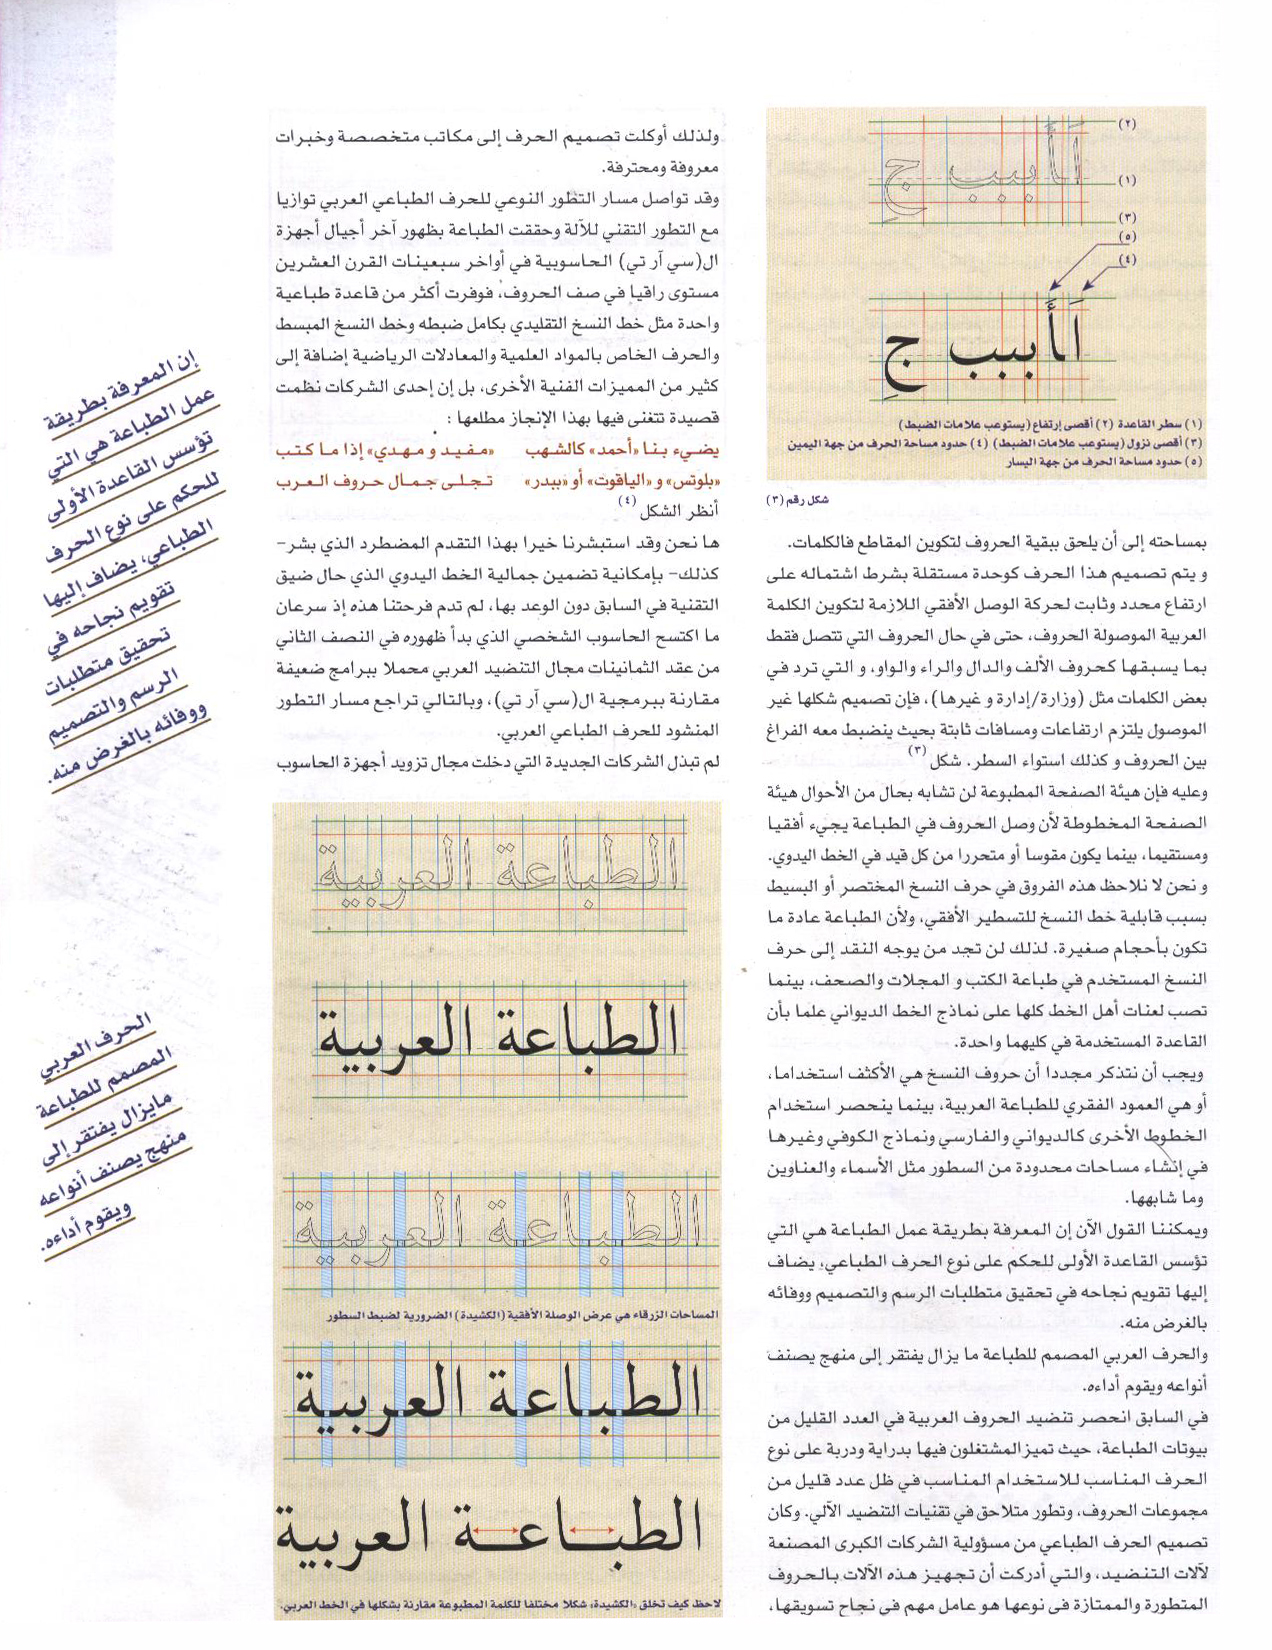 (٢)
أَ أَ بيب جِ
(١)
(٣)
(٥)
(٤)
أَ أَ بيب جِ
(١) سطر القاعدة (٢) أقصى إرتفاع (يستوعب علامات الضبط)
(٣) أقصى نزول (يستوعب علامات الضبط) (٤) حدود مساحة الحرف من جهة اليمين
(٥) حدود مساحة الحرف من جهة اليسار
شكل رقم (٣)
بمساحته إلى أن يلحق ببقية الحروف لتكوين المقاطع فالكلمات.
و يتم تصميم هذا الحرف كوحدة مستقلة بشرط اشتماله على
ارتفاع محدد وثابت لحركة الوصل الأفقي اللازمة لتكوين الكلمة
العربية الموصولة الحروف، حتى في حال الحروف التي تتصل فقط
بما يسبقها كحروف الألف والدال والراء والواو، و التي ترد في
بعض الكلمات مثل (وزارة/إدارة و غيرها)، فإن تصميم شكلها غير
الموصول يلتزم ارتفاعات ومسافات ثابتة بحيث ينضبط معه الفراغ
بين الحروف و كذلك استواء السطر. شكل (٣)
وعليه فإن هيئة الصفحة المطبوعة لن تشابه بحال من الأحوال هيئة
الصفحة المخطوطة لأن وصل الحروف في الطباعة يجيء أفقيا
ومستقيما، بينما يكون مقوسا أو متحررا من كل قيد في الخط اليدوي.
و نحن لا نلاحظ هذه الفروق في حرف النسخ المختصر أو البسيط
بسبب قابلية خط النسخ للتسطير الأفقي، ولأن الطباعة عادة ما
تكون بأحجام صغيرة. لذلك لن تجد من يوجه النقد إلى حرف
النسخ المستخدم في طباعة الكتب و المجلات والصحف، بينما
تصب لعنات أهل الخط كلها على نماذج الخط الديواني علما بأن
القاعدة المستخدمة في كليهما واحدة.
ويجب أن نتذكر مجددا أن حروف النسخ هي الأكثف استخداما،
أو هي العمود الفقري للطباعة العربية، بينما ينحصر استخدام
الخطوط الأخرى كالديواني والفارسي ونماذج الكوفي وغيرها
في إنشاء مساحات محدودة من السطور مثل الأسماء والعناوين
وما شابهها.
ويمكننا القول الآن إن المعرفة بطريقة عمل الطباعة هي التي
تؤسس القاعدة الأولى للحكم على نوع الحرف الطباعي، يضاف
إليها تقويم نجاحه في تحقيق متطلبات الرسم والتصميم ووفائه
بالغرض منه.
والحرف العربي المصمم للطباعة ما يزال يفتقر إلى منهج يصنف
أنواعه ويقوم أداءه.
في السابق انحصر تنضيد الحروف العربية في العدد القليل من
بيوتات الطباعة، حيث تميز المشتغلون فيها بدراية ودربة على نوع
الحرف المناسب للاستخدام المناسب في ظل عدد قليل من
مجموعات الحروف، وتطور متلاحق في تقنيات التنضيد الآلي. وكان
تصميم الحرف الطباعي من مسؤولية الشركات الكبرى المصنعة
لآلات التنضيد، والتي أدركت أن تجهيز هذه الآلات بالحروف
المتطورة والممتازة في نوعها هو عامل مهم في نجاح تسويقها،
ولذلك أوكلت تصميم الحرف إلى مكاتب متخصصة وخبرات
معروفة ومحترفة.
وقد تواصل مسار التطور النوعي للحرف الطباعي العربي توازيا
مع التطور التقني للآلة وحققت الطباعة بظهور آخر أجيال أجهزة
ال(سي آر تي) الحاسوبية في أواخر سبعينات القرن العشرين
مستوى راقيا في صف الحروف، فوفرت أكثر من قاعدة طباعية
واحدة مثل خط النسخ التقليدي بكامل ضبطه وخط النسخ المبسط
والحرف الخاص بالمواد العلمية والمعادلات الرياضية إضافة إلى
كثير من المميزات الفنية الأخرى، بل إن إحدى الشركات نظمت
قصيدة تتغنى فيها بهذا الإنجاز مطلعها :
يضيء بنا «أحمد» كالشهب «مفيد و مهدي» إذا ما كتب
«بلوتس» و «الياقوت» أو «بيدر» تجلى جمال حروف العرب
أنظر الشكل (٤)
ها نحن وقد استبشرنا خيرا بهذا التقدم المضطرد الذي بشر–
كذلك– بإمكانية تضمين جمالية الخط اليدوي الذي حال ضيق
التقنية في السابق دون الوعد بها، لم تدم فرحتنا هذه إذ سرعان
ما اكتسح الحاسوب الشخصي الذي بدأ ظهوره في النصف الثاني
من عقد الثمانينات مجال التنضيد العربي محملا ببرامج ضعيفة
مقارنة ببرمجية ال(سي آر تي)، وبالتالي تراجع مسار التطور
المنشود للحرف الطباعي العربي.
لم تبذل الشركات الجديدة التي دخلت مجال تزويد أجهزة الحاسوب
الطباعة العربية
الطباعة العربية
الطباعة العربية
المساحات الزرقاء هي عرض الوصلة الأفقية (الكشيدة) الضرورية لضبط السطور
الطباعة العربية
الطبـاعـة العربية
لاحظ كيف تخلق «الكشيدة» شكلا مختلفا للكلمة المطبوعة مقارنة بشكلها في الخط العربي.
إن المعرفة بطريقة
عمل الطباعة هي التي
تؤسس القاعدة الأولى
للحكم على نوع الحرف
الطباعي، يضاف إليها
تقويم نجاحه في
تحقيق متطلبات
الرسم والتصميم
ووفائه بالغرض منه.
الحرف العربي
المصمم للطباعة
مايزال يفتقر إلى
منهج يصنف أنواعه
ويقوم أداءه.